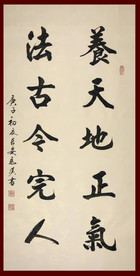 養天地正氣
法古今完人
庚子初夏
書